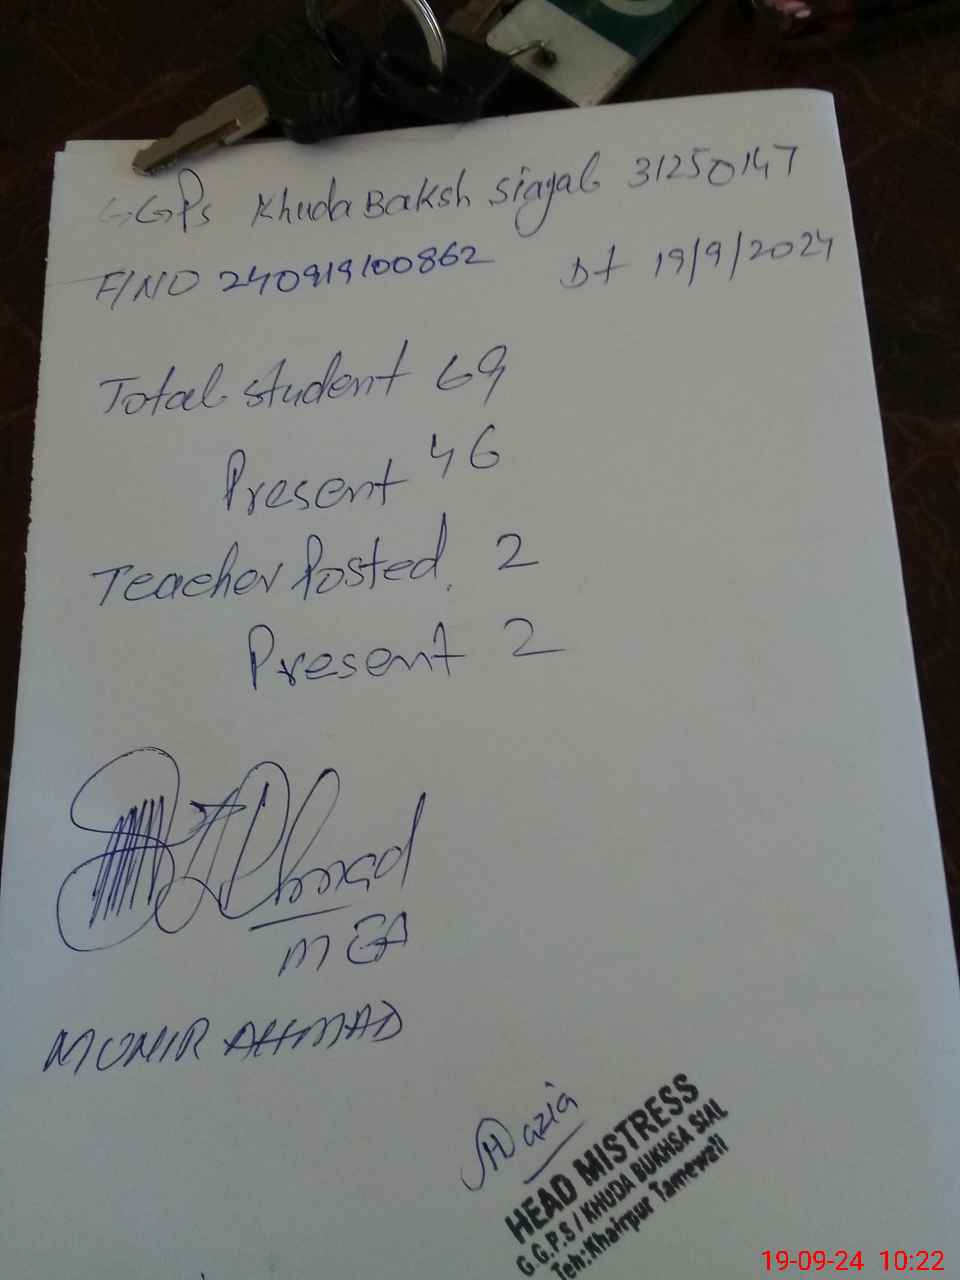 GGPs Khuda Baksh Siayal 31250147
F/NO 240919100862 Dt 19/9/2024
Total student 69
Present 46
Teacher Posted. 2
Present 2
Ahmad
MEA
MUNIR AHMAD
HEAD MISTRESS
G.G.P.S / KHUDA BUKHSA SIAL
Teh:Khairpur Tamewali
19-09-24 10:22